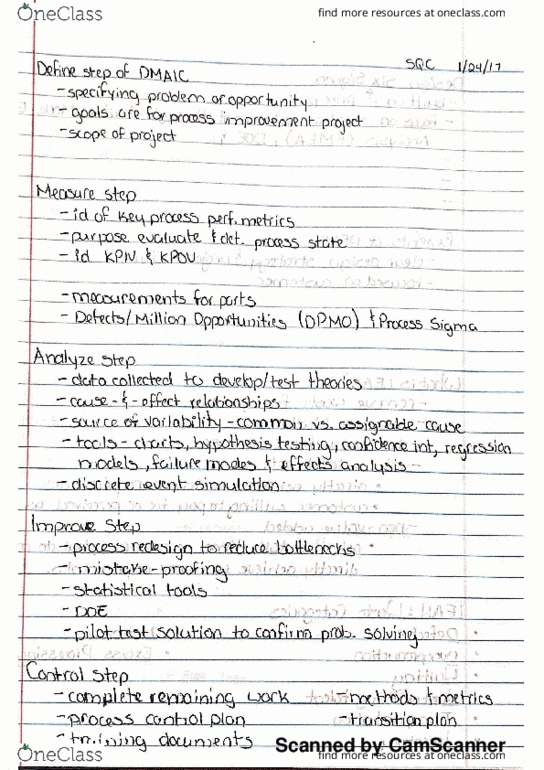 OneClass
find more resources at oneclass.com
SQC 1/24/17
Define step of DMAIC
- specifying problem or opportunity
- goals are for process improvement project
- scope of project
Measure step
- id of key process perf. metrics
- purpose evaluate & det. process state
- id KPIV & KPOV
- measurements for parts
- Defects/Million Opportunities (DPMO) & Process Sigma
Analyze step
- data collected to develop/test theories
- cause-&-effect relationships
- source of variability - common vs. assignable cause
- tools - charts, hypothesis testing, confidence int, regression
models, failure modes & effects analysis
- discrete event simulation
Improve Step
- process redesign to reduce bottlenecks
- mistake-proofing
- statistical tools
- DOE
- pilot test solution to confirm prob. solving
Control Step
- complete remaining work - methods & metrics
- process control plan - transition plan
- training documents
Scanned by CamScanner
OneClass
find more resources at oneclass.com